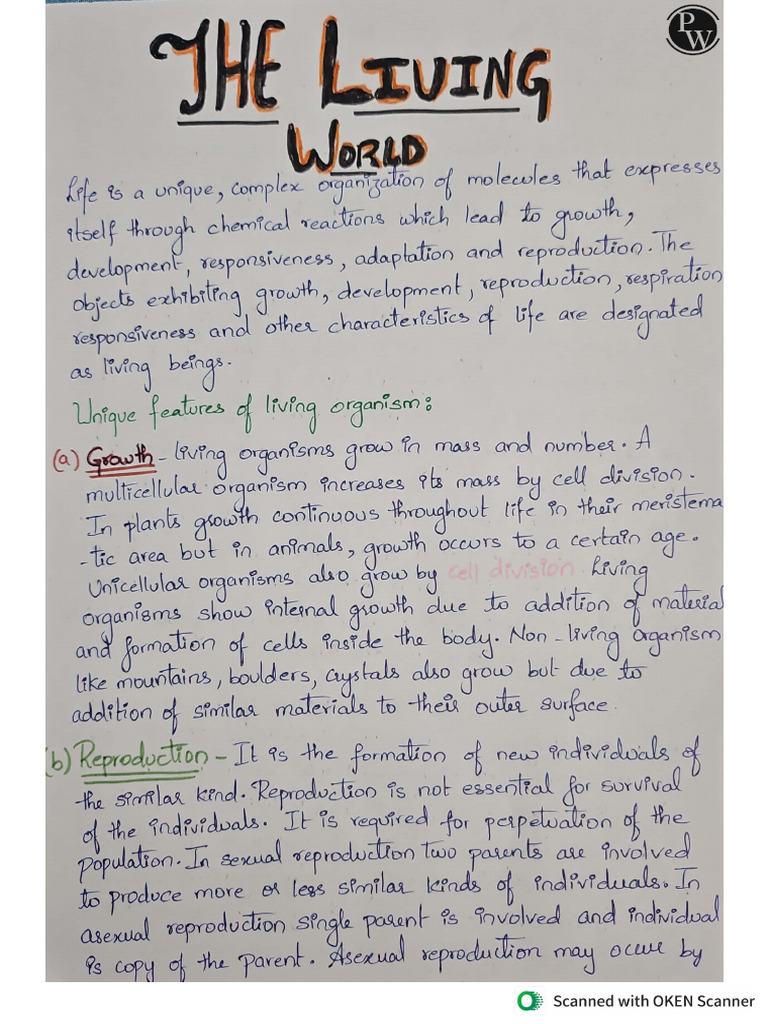 PW
THE LIVING
WORLD
Life is a unique, complex organization of molecules that expresses
itself through chemical reactions which lead to growth,
development, responsiveness, adaptation and reproduction. The
objects exhibiting growth, development, reproduction, respiration
responsiveness and other characteristics of life are designated
as living beings.
Unique features of living organism:
(a) Growth - living organisms grow in mass and number. A
multicellular organism increases its mass by cell division.
In plants growth continuous throughout life in their meristema
-tic area but in animals, growth occurs to a certain age.
Unicellular organisms also grow by cell division. Living
organisms show internal growth due to addition of material
and formation of cells inside the body. Non-living organism
like mountains, boulders, crystals also grow but due to
addition of similar materials to their outer surface.
(b) Reproduction - It is the formation of new individuals of
the similar kind. Reproduction is not essential for survival
of the individuals. It is required for perpetuation of the
population. In sexual reproduction two parents are involved
to produce more or less similar kinds of individuals. In
asexual reproduction single parent is involved and individual
is copy of the parent. Asexual reproduction may occur by
Scanned with OKEN Scanner